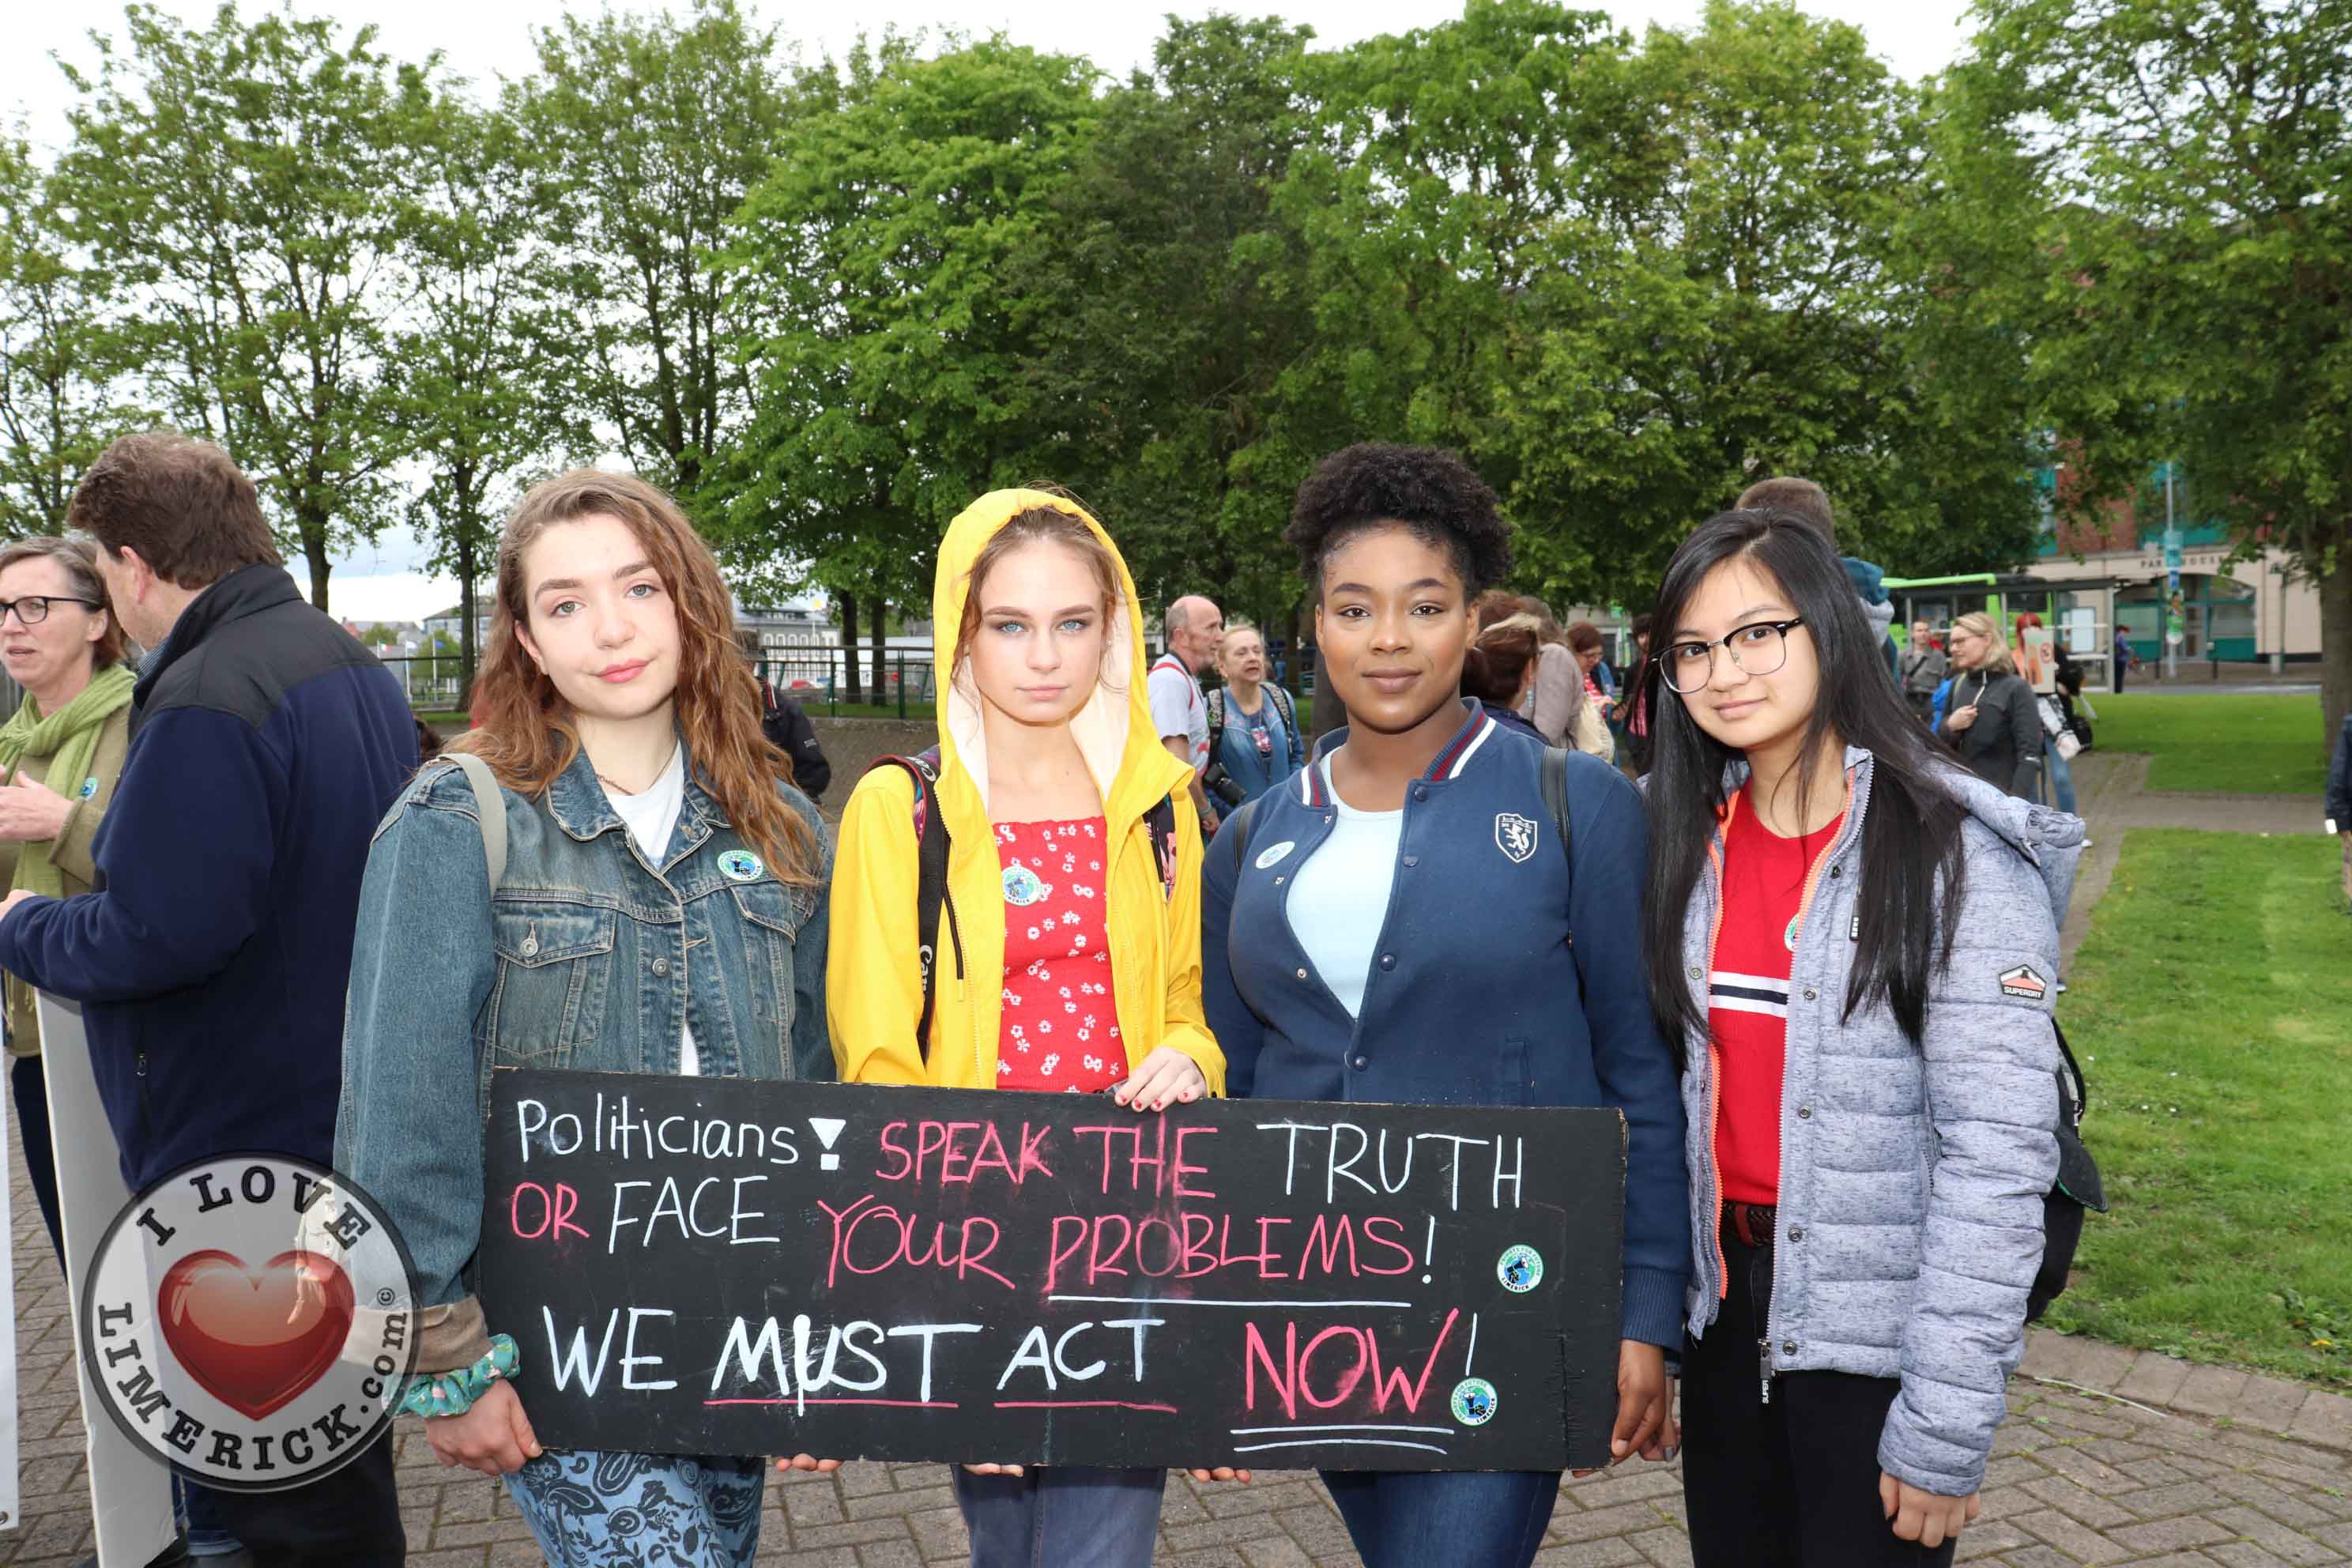 Politicians! SPEAK THE TRUTH
OR FACE YOUR PROBLEMS!
WE MUST ACT NOW!
I LOVE
LIMERICK.com©
SUPERDRY
Canon
LIMERICK
LIMERICK